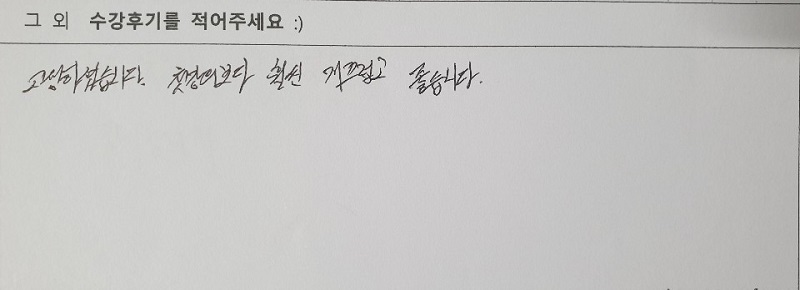 그 외 수강후기를 적어주세요 :)
고생하셨습니다. 첫강의보다 훨씬 매끄럽고 좋습니다.